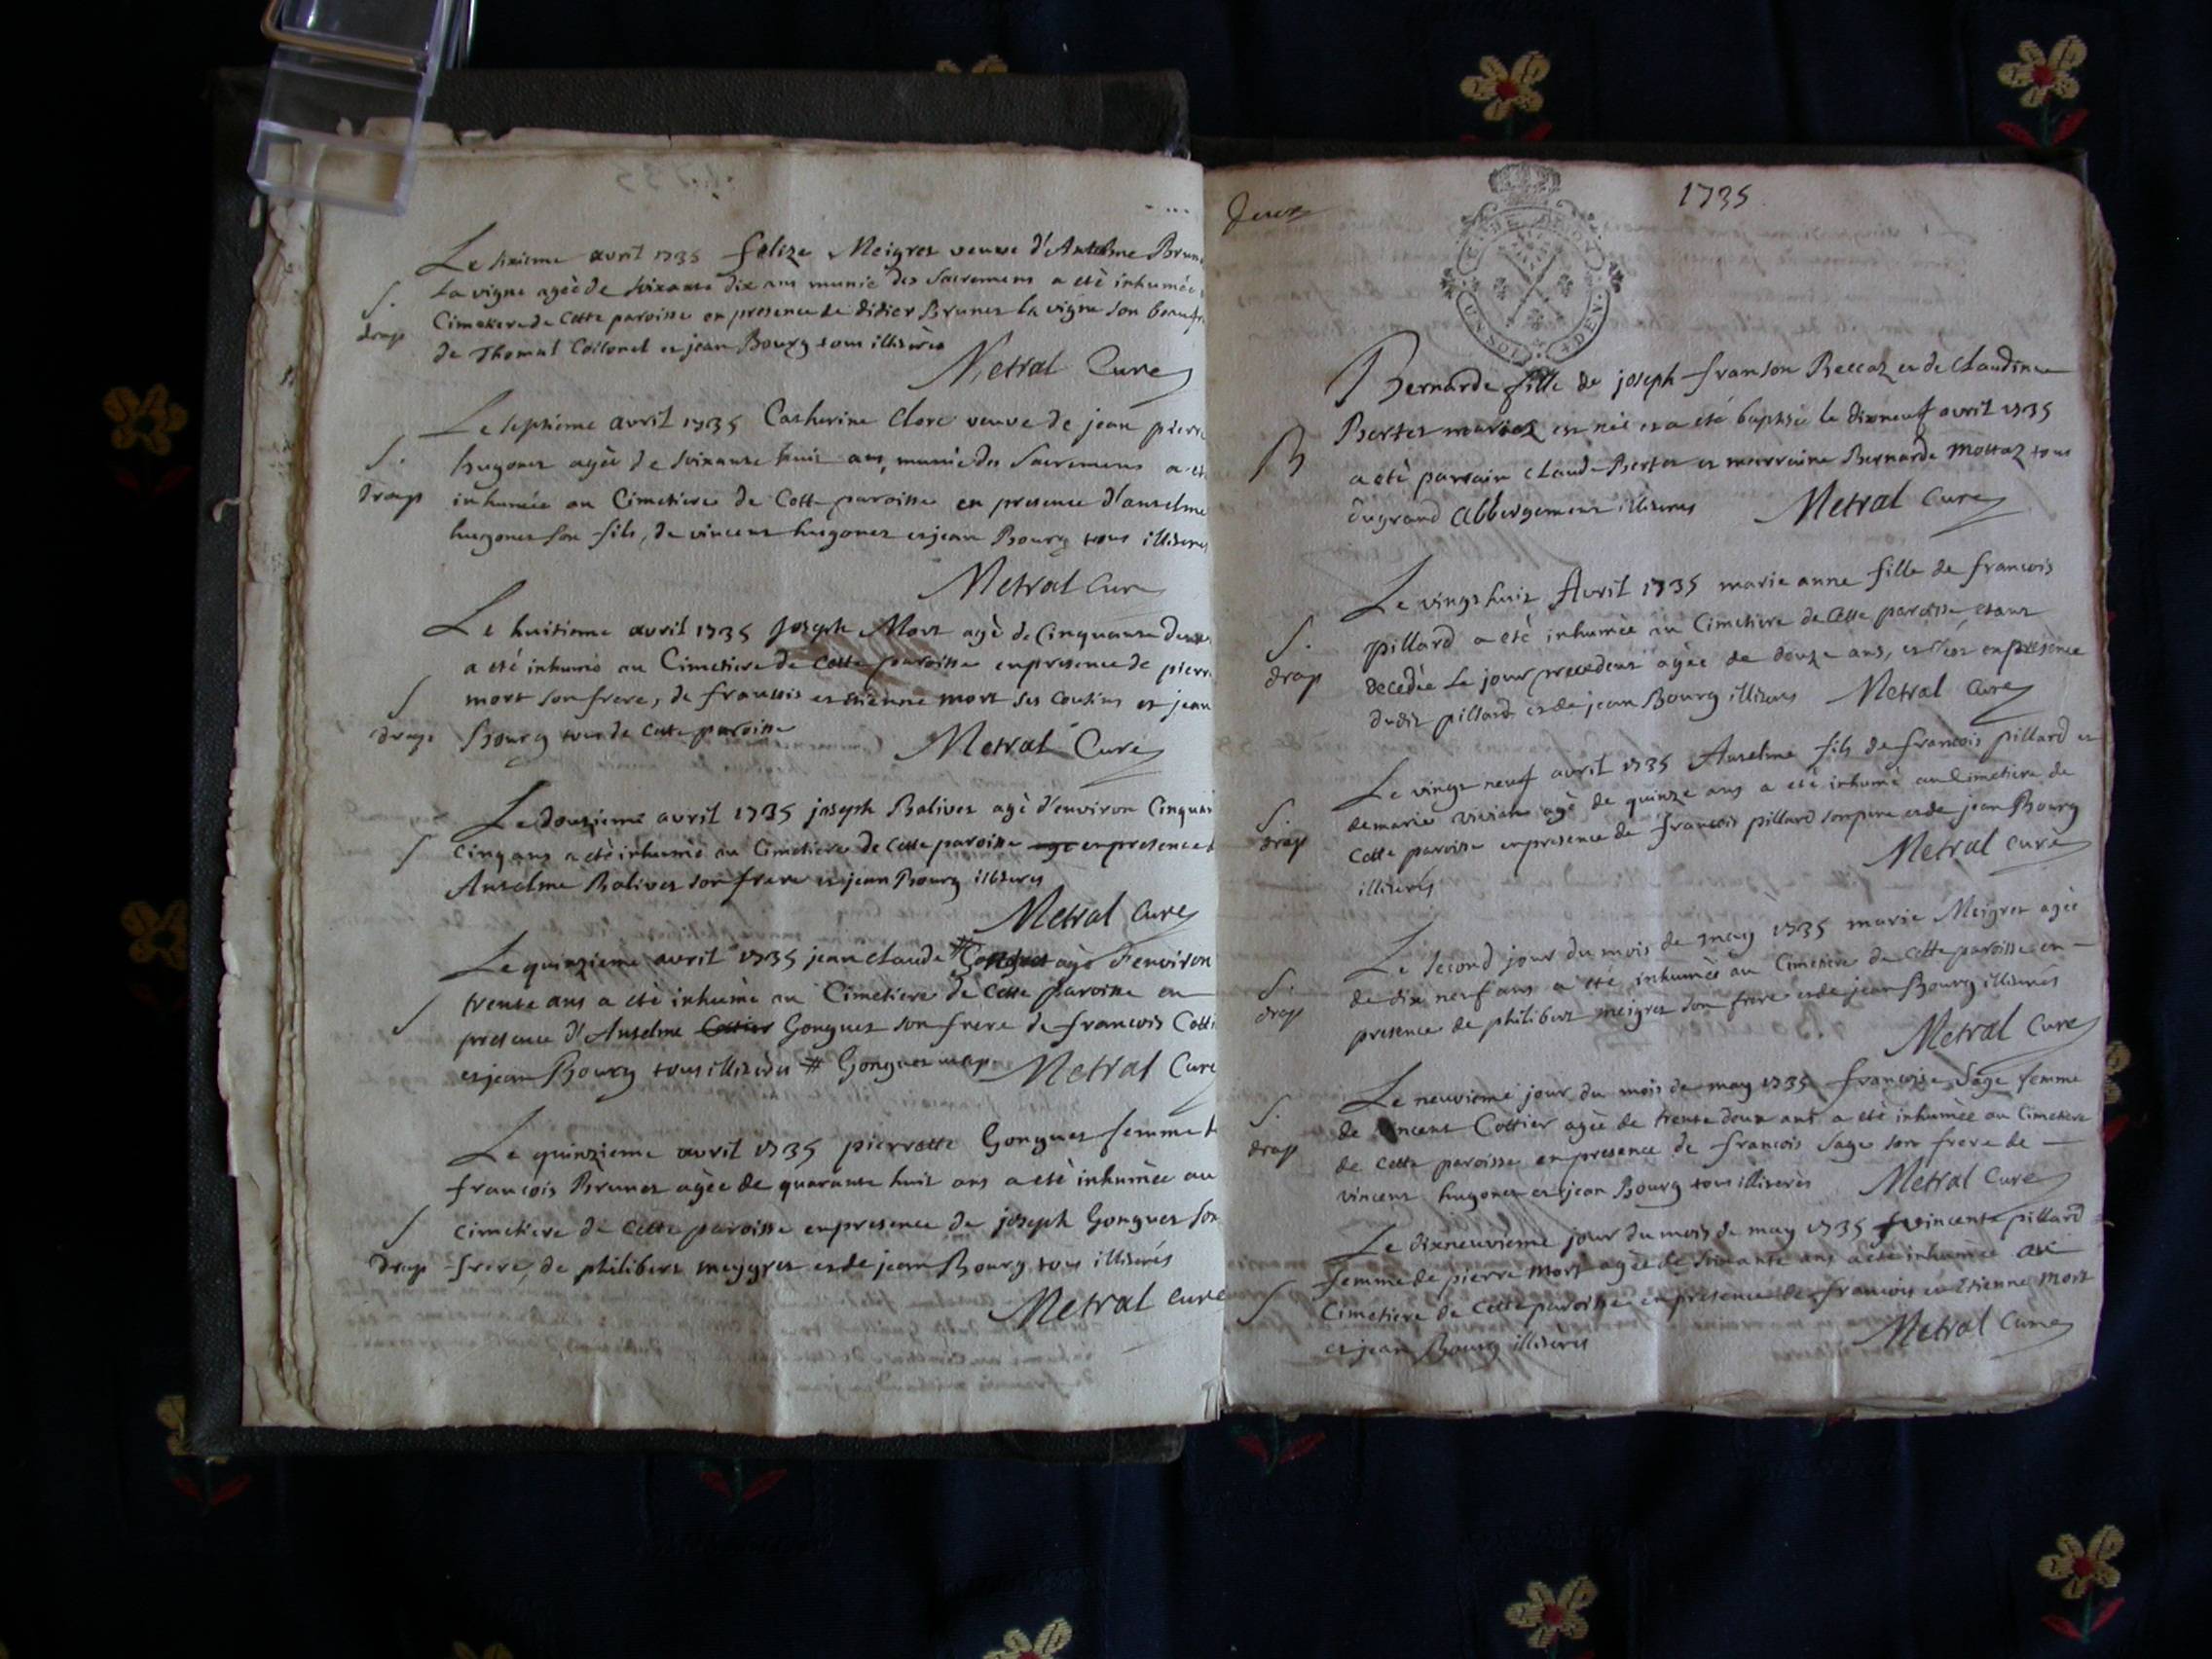 Le sixieme avril 1735 feleze Meigret veuve d'Antelme Brun
la vigne agèe de soixante dix ans munie des Sacremens a etè inhumée
S.
Cimetiere de cette paroisse en presence de didier Brunet la vigne son beaufr
drap
de Thomas Coilonel et jean Bourg tous illiterès
Metral Curè
Le septieme avril 1735 Catherine Clerc veuve de jean pierre
S.
hugonet agèe de soixante huit ans, munie des Sacremens a et
drap
inhumée au Cimetiere de Cette paroisse en presence d'anselme
hugonet son fils, de vincent hugonet et jean Bourg tous illiteres
Metral Cur
Le huitieme avril 1735 Joseph Mort agè de Cinquante deux
a eté inhumé au Cimetiere de cette paroisse en presence de pierr
S
mort son frere, de francois et etienne mort ses cousins et jean
drap
Bourg tous de cette paroisse
Metral Curè
Le douzieme avril 1735 joseph Balivet agè d'environ Cinquan
S
cinq ans a etè inhumé au Cimetiere de Cette paroisse en presence d
Anselme Balivet son frere et jean Bourg illiteres
Metral Curè
Le quinzieme avril 1735 jean claude # agè d'environ
trente ans a etè inhumè au Cimetiere de Cette paroisse en
S
presence d'Anselme Cottier Gonguet son frere de francois Cotti
et jean Bourg tous illiterès # Gonguet
Metral Curè
Le quinzieme avril 1735 pierrette Gonguet femme
francois Brunet agèe de quarante huit ans a etè inhumèe au
S
cimetiere de cette paroisse en presence de joseph Gonguet son
drap
frere, de philibert meygret et de jean Bourg tous illiterés
Metral curè
1735
UN SOL 4 DEN.
Bernarde fille de joseph franson Reccaz et de Claudine
Bertet mariez est née et a eté baptisée le dixneuf avril 1735
B
a etè parrain claude Bertet et marraine Bernarde Mottaz tous
du grand Abbergement illiteres
Metral Curè
Le vingt huit Avril 1735 marie anne fille de francois
S.
pillard a etè inhumèe au Cimetiere de Cette paroisse, etant
drap
decedèe le jour precedent agèe de douze ans, en presence
dudit pillard et de jean Bourg illiteres
Metral Curè
Le vingt neuf avril 1735 Anselme fils de francois pillard et
de marie vivian agè de quinze ans a etè inhumè au Cimetiere de
S.
drap
Cette paroisse en presence de francois pillard son pere et de jean Bourg
illiterés
Metral curè
Le second jour du mois de may 1735 marie Meigret agèe
S.
de dix neuf ans a etè inhumèe au Cimetiere de Cette paroisse en
drap
presence de philibert meigret son frere et de jean Bourg illiterés
Metral Curè
Le neuvieme jour du mois de may 1735 francoise Sage femme
S.
de vincent Cottier agèe de trente deux ans a etè inhumèe au Cimetiere
drap
de Cette paroisse en presence de francois Sage son frere de
vincent hugonet et jean Bourg tous illiterès
Metral Curè
Le dixneuvieme jour du mois de may 1735 vincente pillard
femme de pierre Mort agèe de soixante ans a etè inhumèe au
S
Cimetiere de Cette paroisse en presence de francois et Etienne Mort
et jean Bourg illiteres
Metral Curè